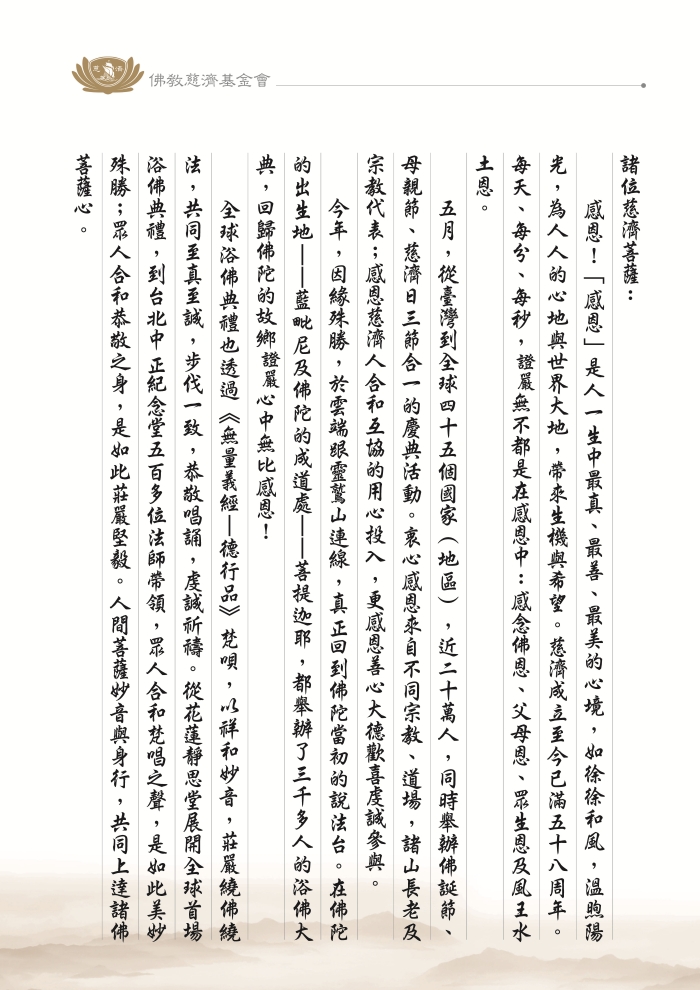 佛教慈濟基金會
諸位慈濟菩薩：
感恩！「感恩」是人一生中最真、最善、最美的心境，如徐徐和風，溫煦陽
光，為人人的心地與世界大地，帶來生機與希望。慈濟成立至今已滿五十八周年。
每天、每分、每秒，證嚴無不都是在感恩中：感念佛恩、父母恩、眾生恩及風王水
土恩。
五月，從臺灣到全球四十五個國家（地區），近二十萬人，同時舉辦佛誕節、
母親節、慈濟日三節合一的慶典活動。衷心感恩來自不同宗教、道場，諸山長老及
宗教代表；感恩慈濟人合和互協的用心投入，更感恩善心大德歡喜虔誠參與。
今年，因緣殊勝，於雲端跟靈鷲山連線，真正回到佛陀當初的說法台。在佛陀
的出生地——藍毗尼及佛陀的成道處——菩提迦耶，都舉辦了三千多人的浴佛大
典，回歸佛陀的故鄉證嚴心中無比感恩！
全球浴佛典禮也透過《無量義經—德行品》梵唄，以祥和妙音，莊嚴繞佛繞
法，共同至真至誠，步伐一致，恭敬唱誦，虔誠祈禱。從花蓮靜思堂展開全球首場
浴佛典禮，到台北中正紀念堂五百多位法師帶領，眾人合和梵唱之聲，是如此美妙
殊勝；眾人合和恭敬之身，是如此莊嚴堅毅。人間菩薩妙音與身行，共同上達諸佛
菩薩心。